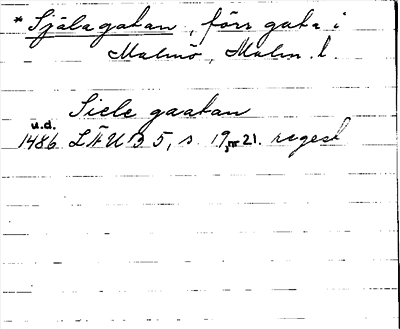 * Självagatan, förr gata i
Malmö, Malm. l.
Siele gaatan
u.d.
1486 LÄUB 5, s. 19, nr 21. regest